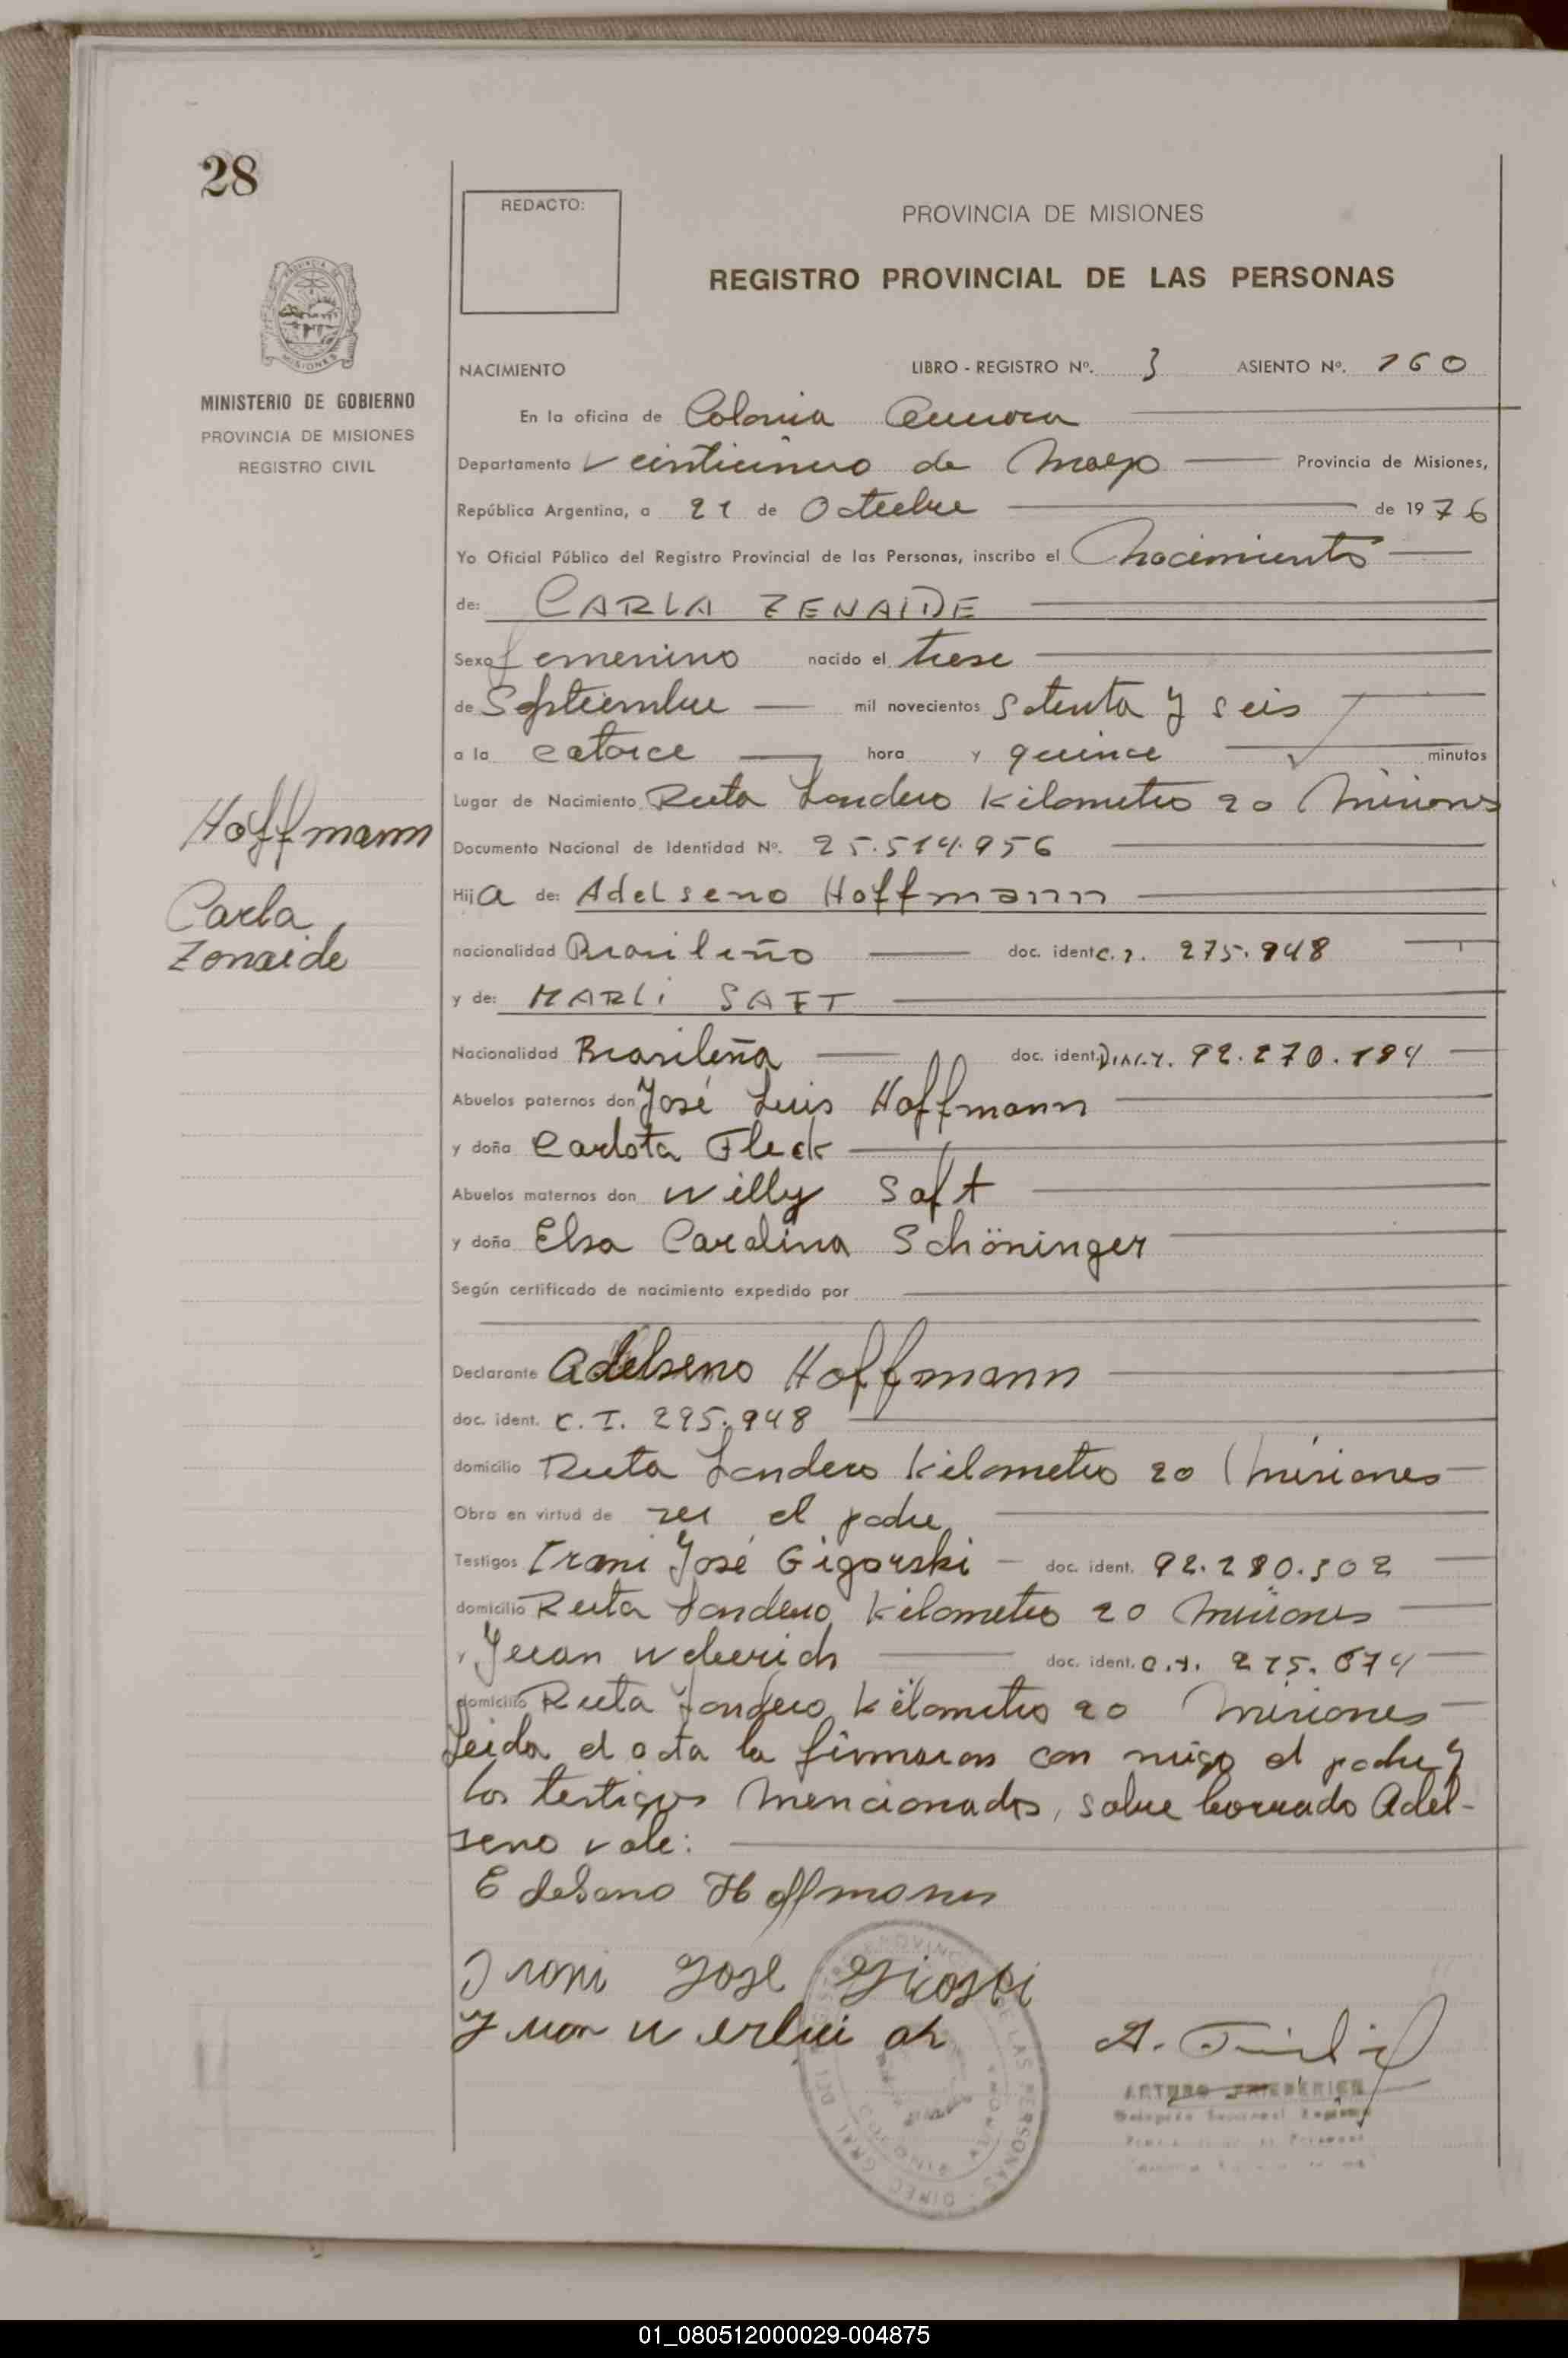 28
REDACTO:
PROVINCIA DE MISIONES
REGISTRO PROVINCIAL DE LAS PERSONAS
MINISTERIO DE GOBIERNO
PROVINCIA DE MISIONES
REGISTRO CIVIL
NACIMIENTO LIBRO - REGISTRO Nº. 3 ASIENTO Nº. 160
En la oficina de Colonia Aurora
Departamento Veinticinco de Mayo Provincia de Misiones,
República Argentina, a 21 de Octubre de 1976
Yo Oficial Público del Registro Provincial de las Personas, inscribo el Nacimiento
de: CARLA ZENAIDE
Sexo femenino nacido el trese
de Septiembre mil novecientos setenta y seis
a la catorce hora y quince minutos
Lugar de Nacimiento Ruta Londero Kilometro 20 Misiones
Hoffmann
Carla
Zenaide
Documento Nacional de Identidad Nº. 25.514.956
Hija de: Adelseno Hoffmann
nacionalidad Brasileño doc. ident C.I. 275.948
y de: MARLI SAFT
Nacionalidad Brasileña doc. ident. 92.270.194
Abuelos paternos don José Luis Hoffmann
y doña Carlota Fleck
Abuelos maternos don Willy Saft
y doña Elsa Carolina Schöninger
Según certificado de nacimiento expedido por
Declarante Adelseno Hoffmann
doc. ident. C.I. 295.948
domicilio Ruta Londero Kilometro 20 Misiones
Obra en virtud de ser el padre
Testigos Irani José Gigorski doc. ident. 92.280.302
domicilio Ruta Londero Kilometro 20 Misiones
y Juan Weberich doc. ident. C.I. 275.674
domicilio Ruta Londero Kilometro 20 Misiones
Leida el acta la firmaron con migo el padre y
los testigos mencionados, sobre borrado Adel-
seno vale:
Edelseno Hoffmann
Irani José
Juan
A.
ARTURO FRIEDERICH
01_080512000029-004875